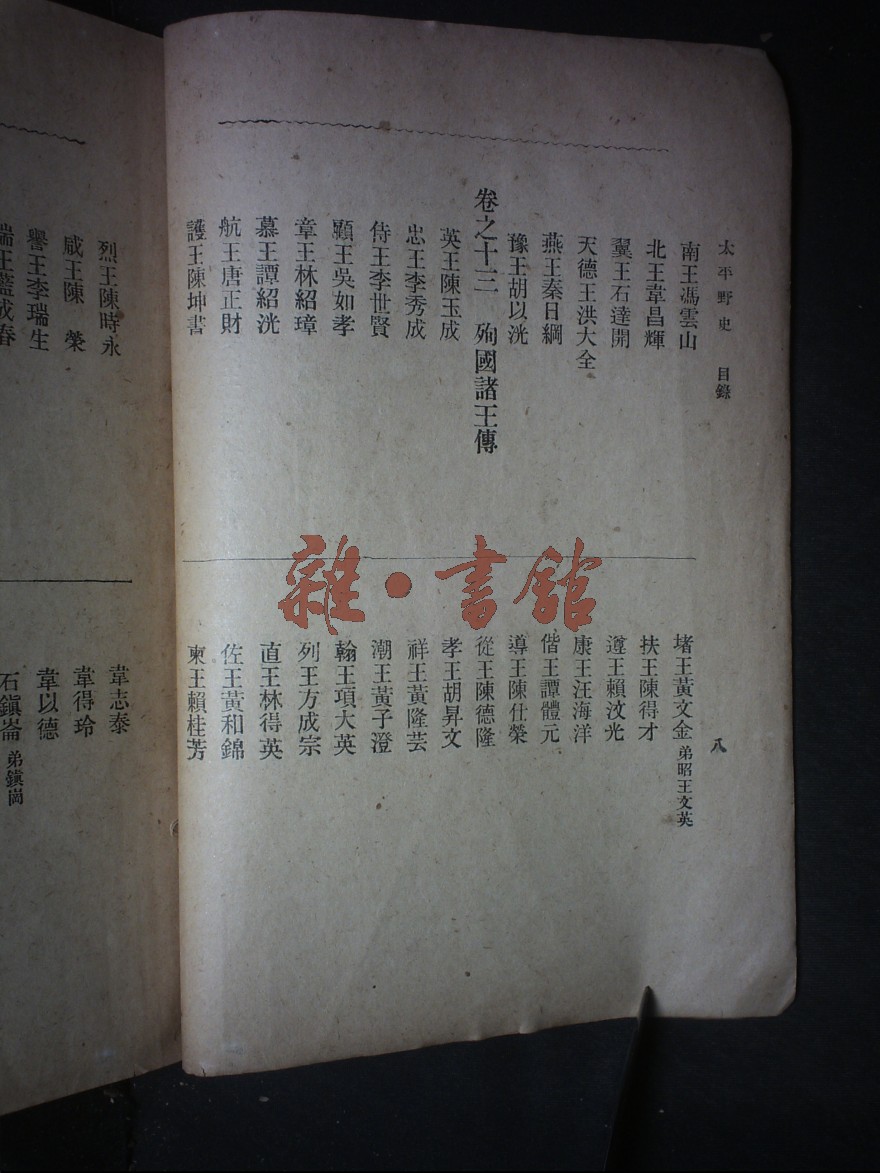 太平野史 目錄
八
南王馮雲山
北王韋昌輝
翼王石達開
天德王洪大全
燕王秦日綱
豫王胡以洸
卷之十三 殉國諸王傳
英王陳玉成
忠王李秀成
侍王李世賢
顧王吳如孝
章王林紹璋
慕王譚紹洸
航王唐正財
護王陳坤書
堵王黃文金 弟昭王文英
扶王陳得才
遵王賴汶光
康王汪海洋
偕王譚體元
導王陳仕榮
從王陳德隆
孝王胡昇文
祥王黃隆芸
潮王黃子澄
翰王項大英
列王方成宗
直王林得英
佐王黃和錦
柬王賴桂芳
烈王陳時永
陳 榮
譽王李瑞生
端王藍成春
韋志泰
韋得玲
韋以德
石鎮崙 弟鎮崗
雜·書館